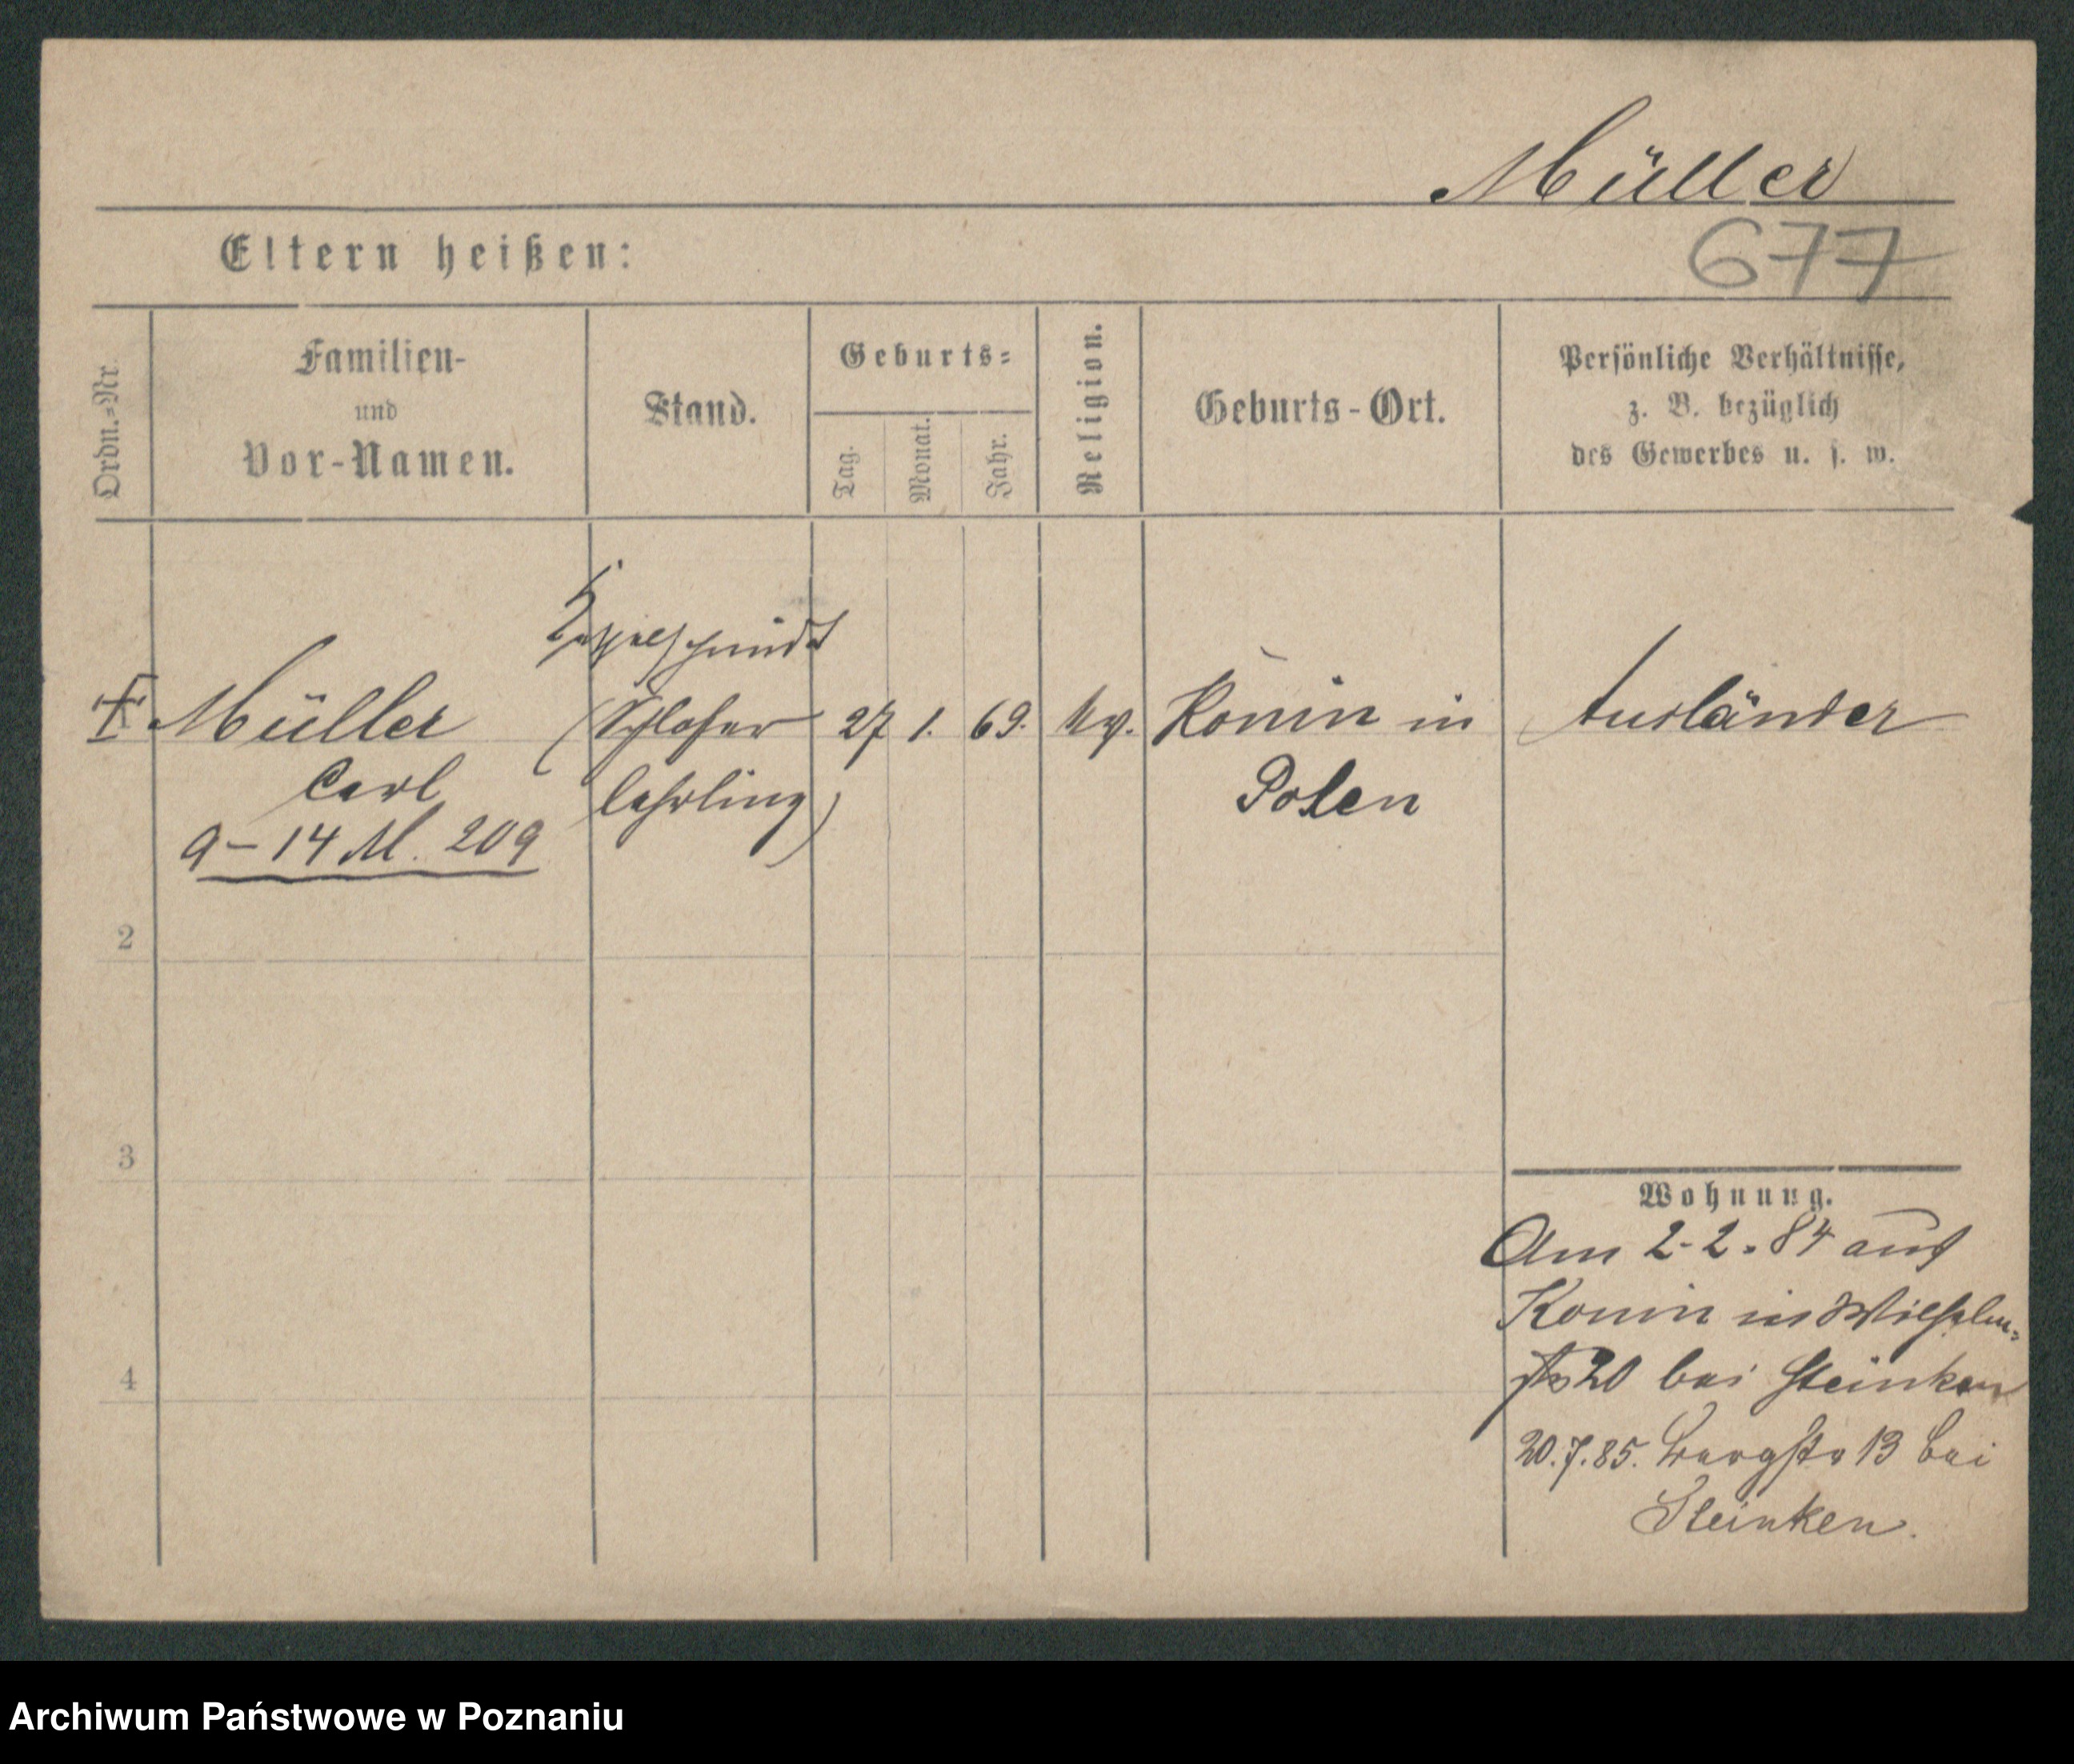 Müller
Eltern heißen:
677
Ordn.=Nr.
Familien-
und
Vor-Namen.
Stand.
Geburts=
Tag.
Monat.
Jahr.
Religion.
Geburts-Ort.
Persönliche Verhältnisse,
z. B. bezüglich
des Gewerbes u. s. w.
Kesselschmidt
Müller
(Schlosser
27 1. 69. ev.
Konin in
Ausländer
Carl
lehrling)
Polen
a-14 M. 209
2
3
4
Wohnung.
Am 2-2.84 aus
Konin in Wilhelm=
str 20 bei Steinken
20.7.85. Bergstr 13 bei
Steinken.
Archiwum Państwowe w Poznaniu